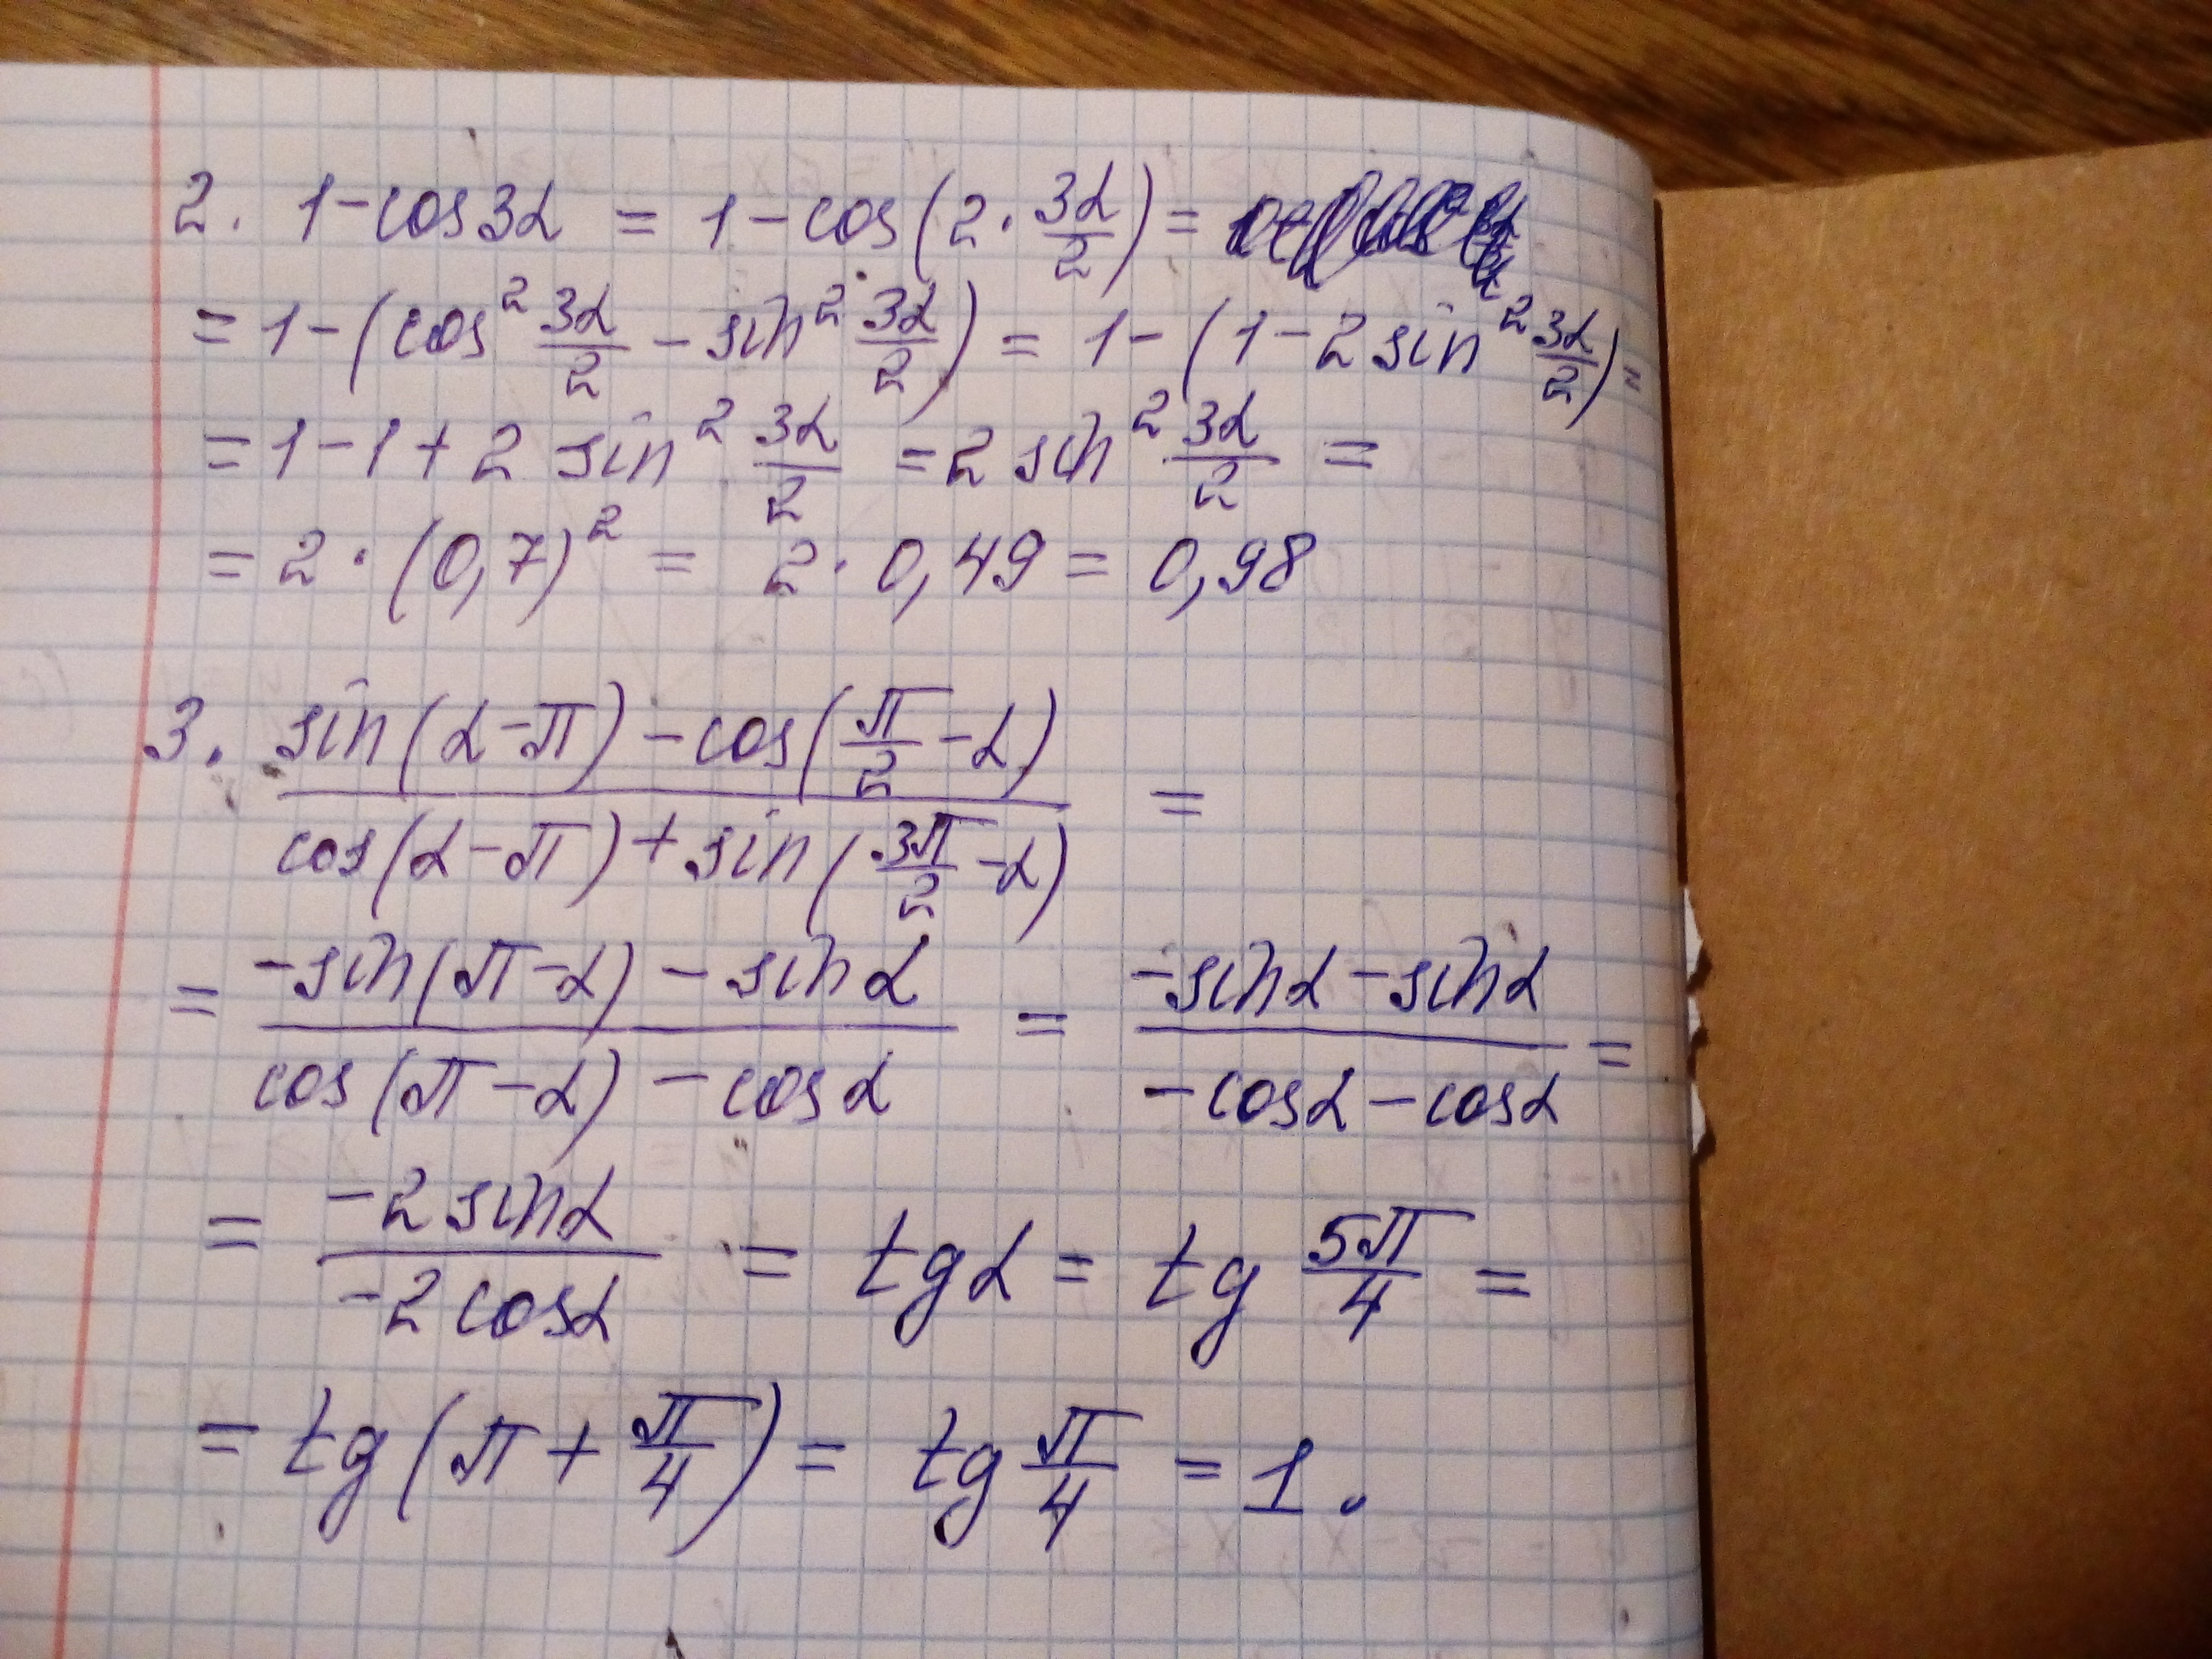 2. 1 - cos3α = 1 - cos(2 · 3α/2) =
= 1 - (cos² 3α/2 - sin² 3α/2) = 1 - (1 - 2 sin² 3α/2) =
= 1 - 1 + 2 sin² 3α/2 = 2 sin² 3α/2 =
= 2 · (0,7)² = 2 · 0,49 = 0,98
3. (sin(α - π) - cos(π/2 - α)) / (cos(α - π) + sin(3π/2 - α)) =
= (-sin(π - α) - sin α) / (cos(π - α) - cos α) = (-sinα - sinα) / (-cosα - cosα) =
= (-2 sinα) / (-2 cosα) = tg α = tg 5π/4 =
= tg(π + π/4) = tg π/4 = 1.